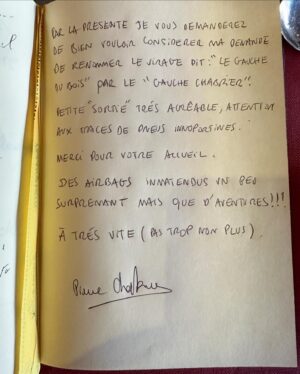 PAR LA PRÉSENTE JE VOUS DEMANDEREZ
DE BIEN VOULOIR CONSIDÉRER MA DEMANDE
DE RENOMMER LE VIRAGE DIT : "LE GAUCHE
DU BOIS" PAR LE "GAUCHE CHABRIER".
PETITE "SORTIE" TRÉS AGRÉABLE, ATTENTION
AUX TRACES DE PNEUS INNOPORTINES.
MERCI POUR VOTRE ACCUEIL.
DES AIRBAGS INNATENDUS UN PEU
SURPRENANT MAIS QUE D'AVENTURES !!!
À TRÉS VITE (PAS TROP NON PLUS)
Pierre